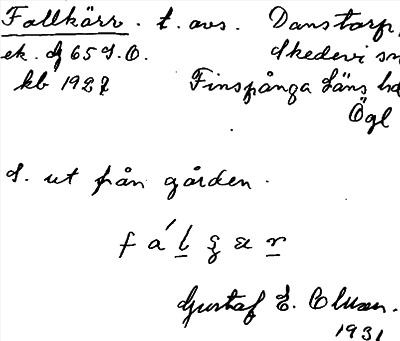 Fallkärr. t. avs. Danstorp,
ek. bl 65 S.O. Skedevi sn
kb 1927 Finspånga läns hd
Ögl
S. ut från gården.
fál
Gustaf E.
1931